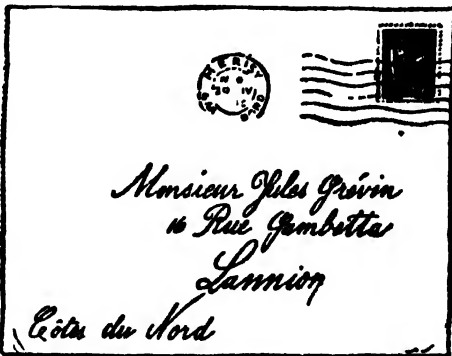 Monsieur Jules Grévin
16 Rue Gambetta
Lannion
Côtes du Nord